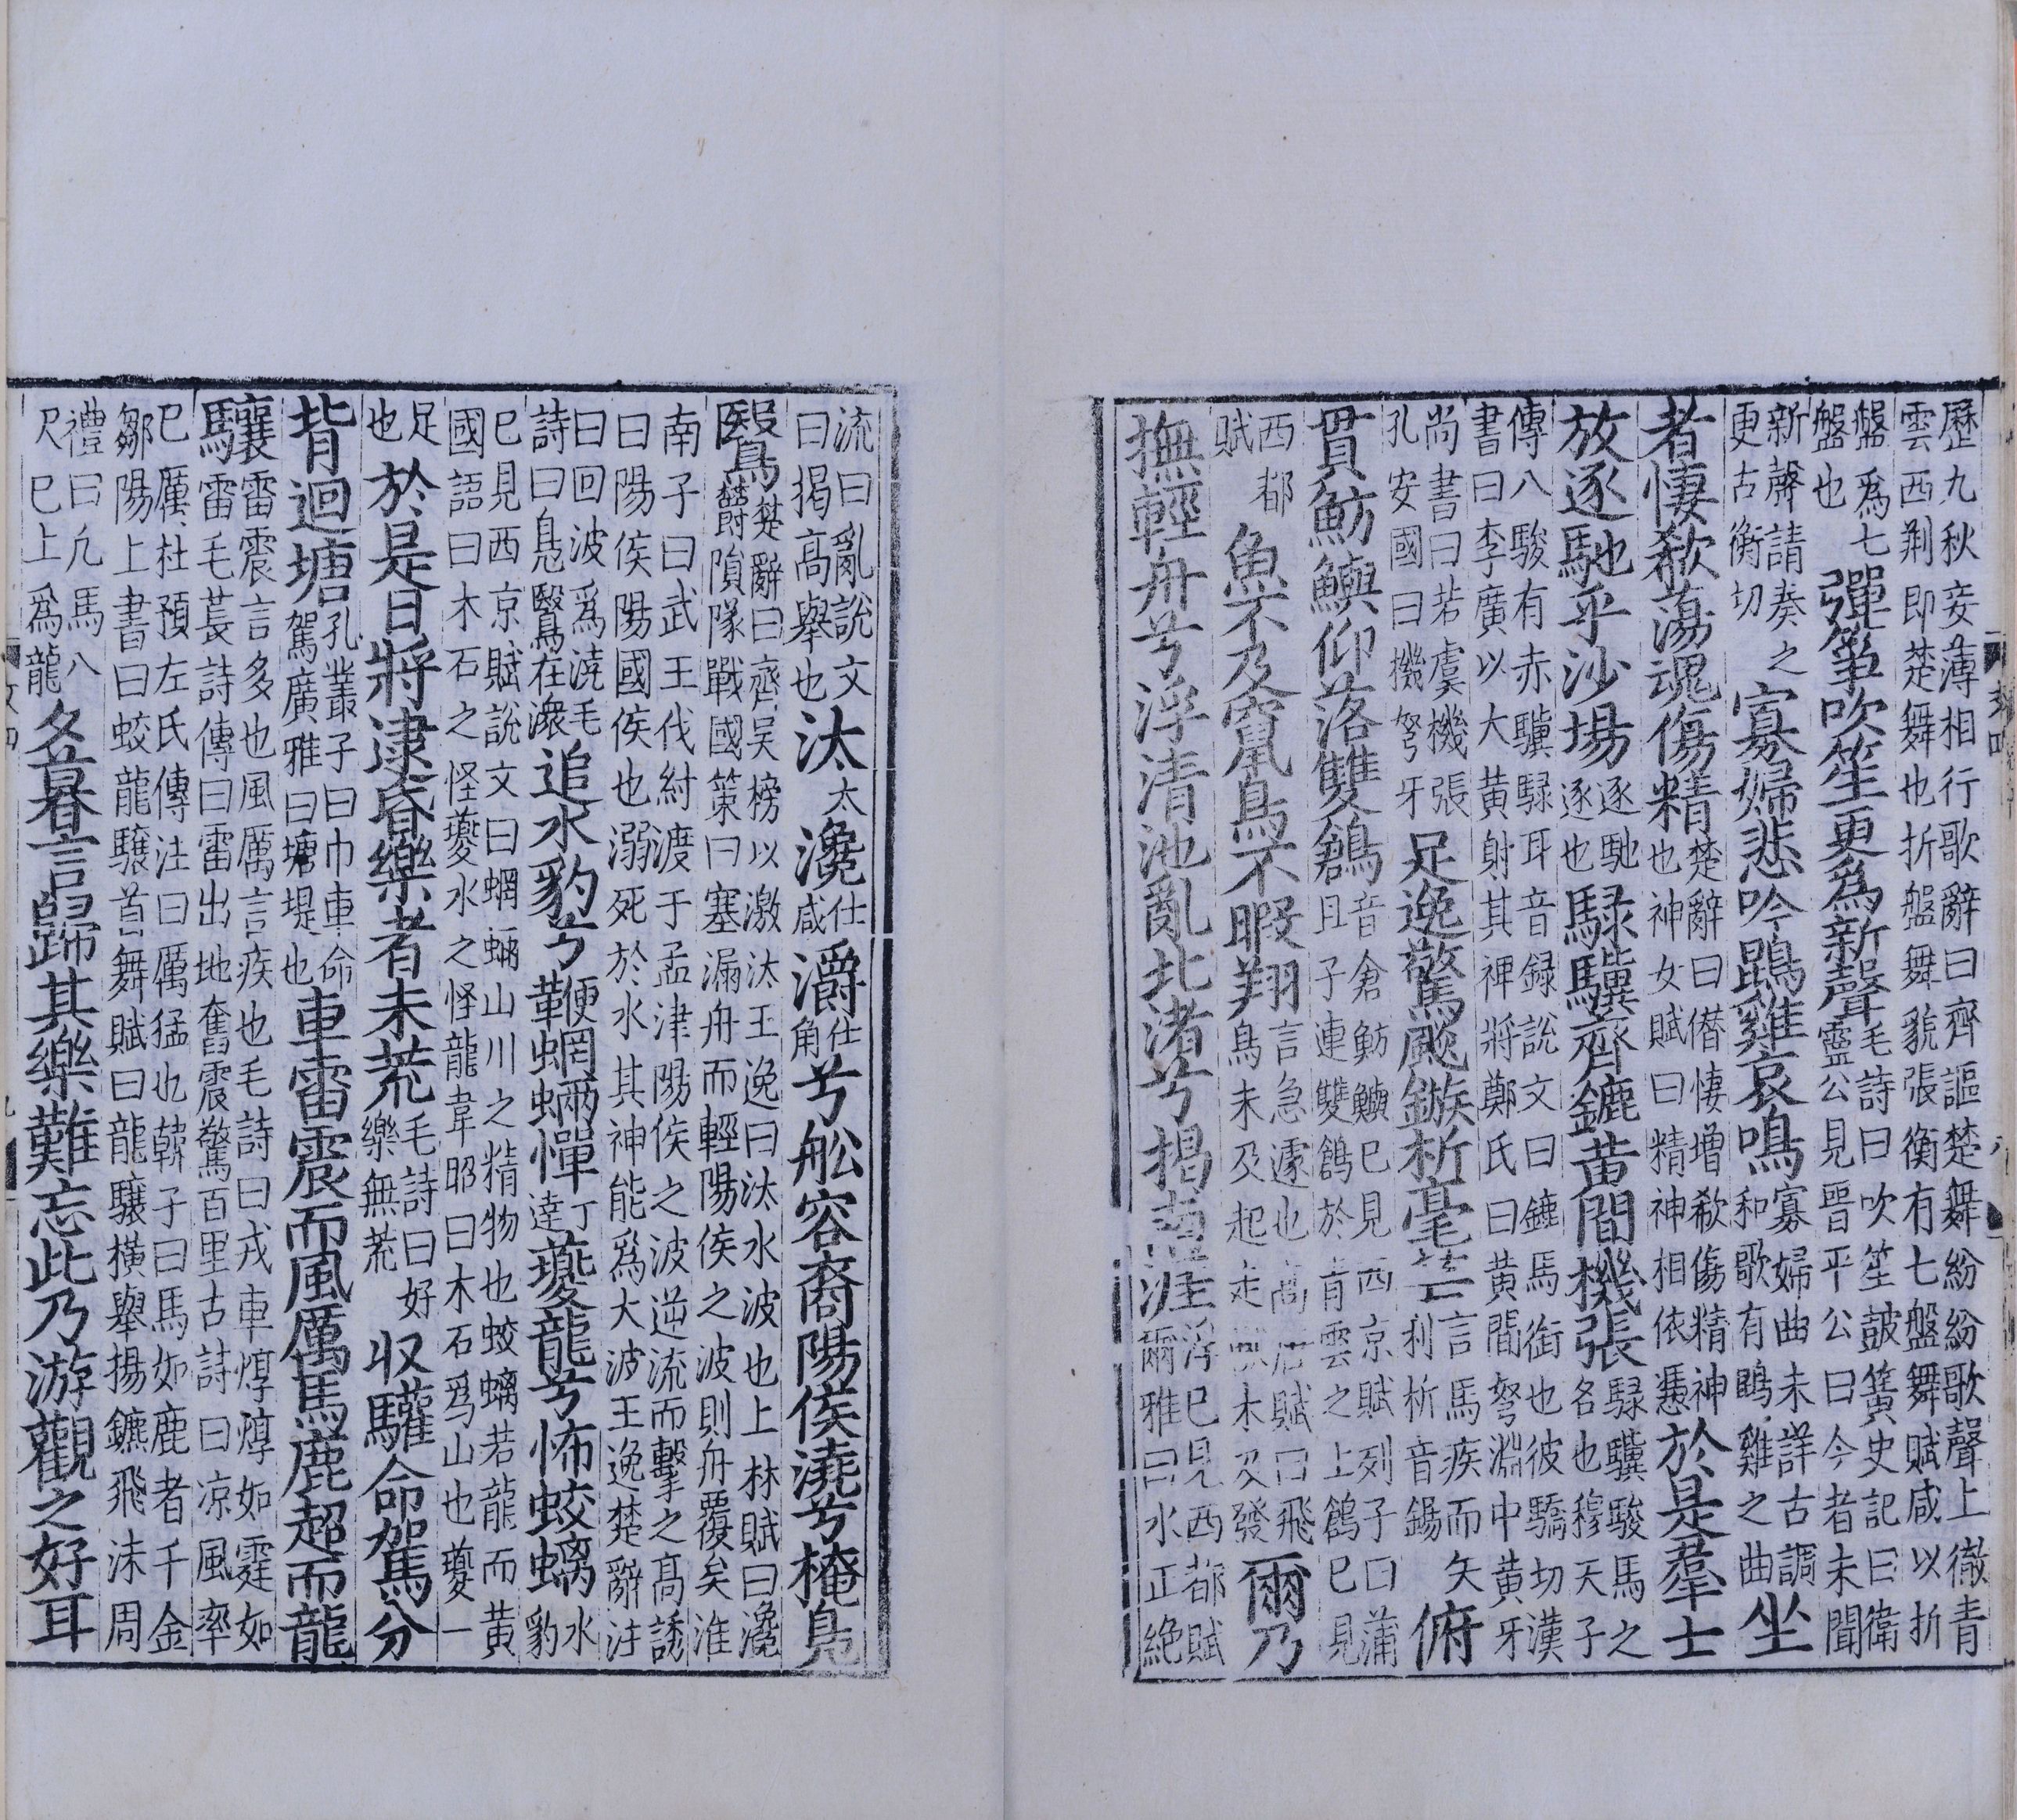 歷九秋妾薄相行歌辭曰齊謳楚舞紛紛歌聲上徹青
雲西荆即楚舞也折盤舞貌張衡有七盤舞賦咸以折
盤爲七
盤也
彈箏吹笙更爲新聲
毛詩曰吹笙皷簧史記曰衛
靈公見晉平公曰今者未聞
新聲請奏之
更古衡切
寡婦悲吟鵾雞哀鳴
寡婦曲未詳古調
和歌有鵾雞之曲
坐
者悽欷蕩魂傷精
楚辭曰僣悽增欷傷精神
也神女賦曰精神相依憑
於是羣士
放逐馳乎沙場
逐馳
逐也
騄驥齊鑣黄間機張
騄驥駿馬之
名也穆天子
傳八駿有赤驥騄耳音録說文曰鑣馬銜也彼驕切漢
書曰李廣以大黄射其裨將鄭氏曰黄間弩淵中黄牙
尚書曰若虞機張
孔安國曰機弩牙
足逸驚飈鏃析毫芒
言馬疾而矢
利析音錫
俯
貫魴鱮仰落雙鶬
音倉魴鱮巳見西京賦列子曰蒲
且子連雙鶬於青雲之上鶬巳見
西都
賦
魚不及竄鳥不暇翔
言急遽也高唐賦曰飛
鳥未及起走獸未及發
爾乃
撫輕舟兮浮清池亂北渚兮揭南涯
浮巳見西都賦
爾雅曰水正絶
流曰亂說文
曰揭高舉也
汰
太
瀺
仕
咸
灂
仕
角
兮舩容裔陽侯澆兮掩鳧
鷖
楚辭曰齊吴榜以激汰王逸曰汰水波也上林賦曰瀺
灂隕隊戰國策曰塞漏舟而輕陽侯之波則舟覆矣淮
南子曰武王伐紂渡于孟津陽侯之波逆流而擊之高誘
曰陽侯陽國侯也溺死於水其神能爲大波王逸楚辭注
曰回波爲澆毛
詩曰鳧鷖在灇
追水豹兮鞭蝄蜽憚
丁
達
夔龍兮怖蛟螭
水
豹
巳見西京賦說文曰蝄蜽山川之精物也蛟螭若龍而黄
國語曰木石之怪夔水之怪龍韋昭曰木石爲山也夔一
足
也
於是日將逮昏樂者未荒
毛詩曰好
樂無荒
収驩命駕分
背迴塘
孔叢子曰巾車命
駕廣雅曰塘堤也
車雷震而風厲馬鹿超而龍
驤
雷震言多也風厲言疾也毛詩曰戎車焞焞如霆如
雷毛萇詩傳曰雷出地奮震驚百里古詩曰凉風率
巳厲杜預左氏傳注曰厲猛也韓子曰馬如鹿者千金
鄒陽上書曰蛟龍驤首舞賦曰龍驤横舉揚鑣飛沬周
禮曰凢馬八
尺巳上爲龍
夕暮言歸其樂難忘此乃游觀之好耳